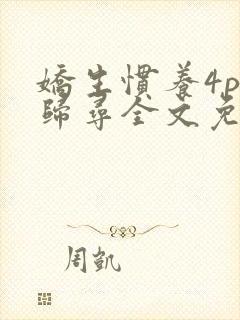 嬌生慣養4p
歸尋全文免
周凱